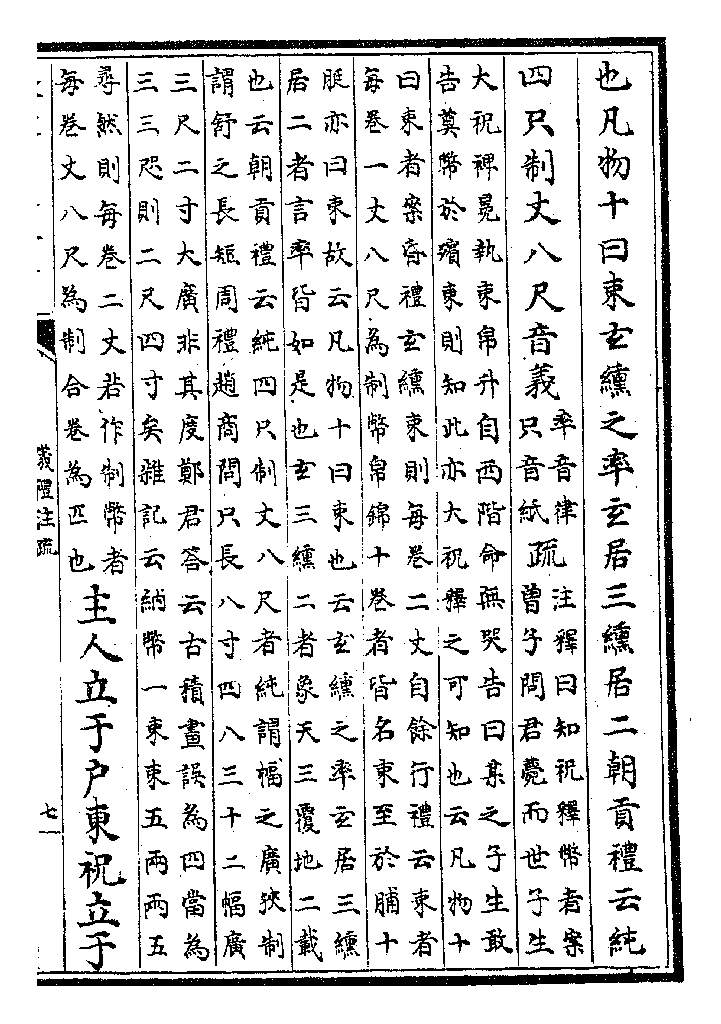 也凡物十曰束玄纁之率玄居三纁居二朝貢禮云純
四只制丈八尺音義率音律只音紙疏注釋曰知祝釋幣者案曽子問君薨而世子生
大祝裨冕執束帛升自西階命無哭告曰某之子生敢
告奠幣於殯東則知此亦大祝釋之可知也云凡物十
曰束者案昏禮玄纁束則每卷二丈自餘行禮云束者
每卷一丈八尺為制幣帛錦十卷者皆名束至於脯十
脡亦曰束故云凡物十曰束也云玄纁之率玄居三纁
居二者言率皆如是也玄三纁二者象天三覆地二載
也云朝貢禮云純四只制丈八尺者純謂幅之廣狹制
謂舒之長短周禮趙商問只長八寸四八三十二幅廣
三尺二寸大廣非其度鄭君答云古積畫誤為四當為
三三咫則二尺四寸矣雜記云納幣一束束五兩兩五
尋然則每卷二丈若作制幣者
每卷丈八尺為制合卷為匹也
主人立于户東祝立于
儀禮注疏
七